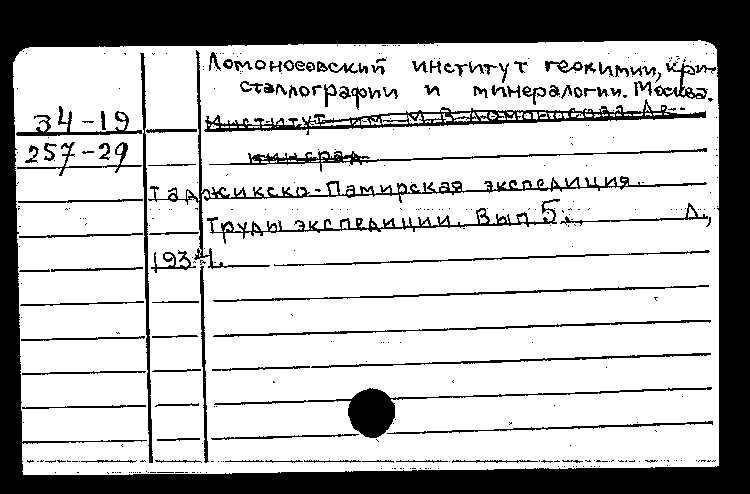 Ломоносовский институт геохимии, кри-
сталлографии и минералогии. Москва.
34-19
Институт им. М.В.Ломоносова. Ле-
257-29
нинград
Таджикско-Памирская экспедиция.
Труды экспедиции. Вып. 5. Л.,
1934.